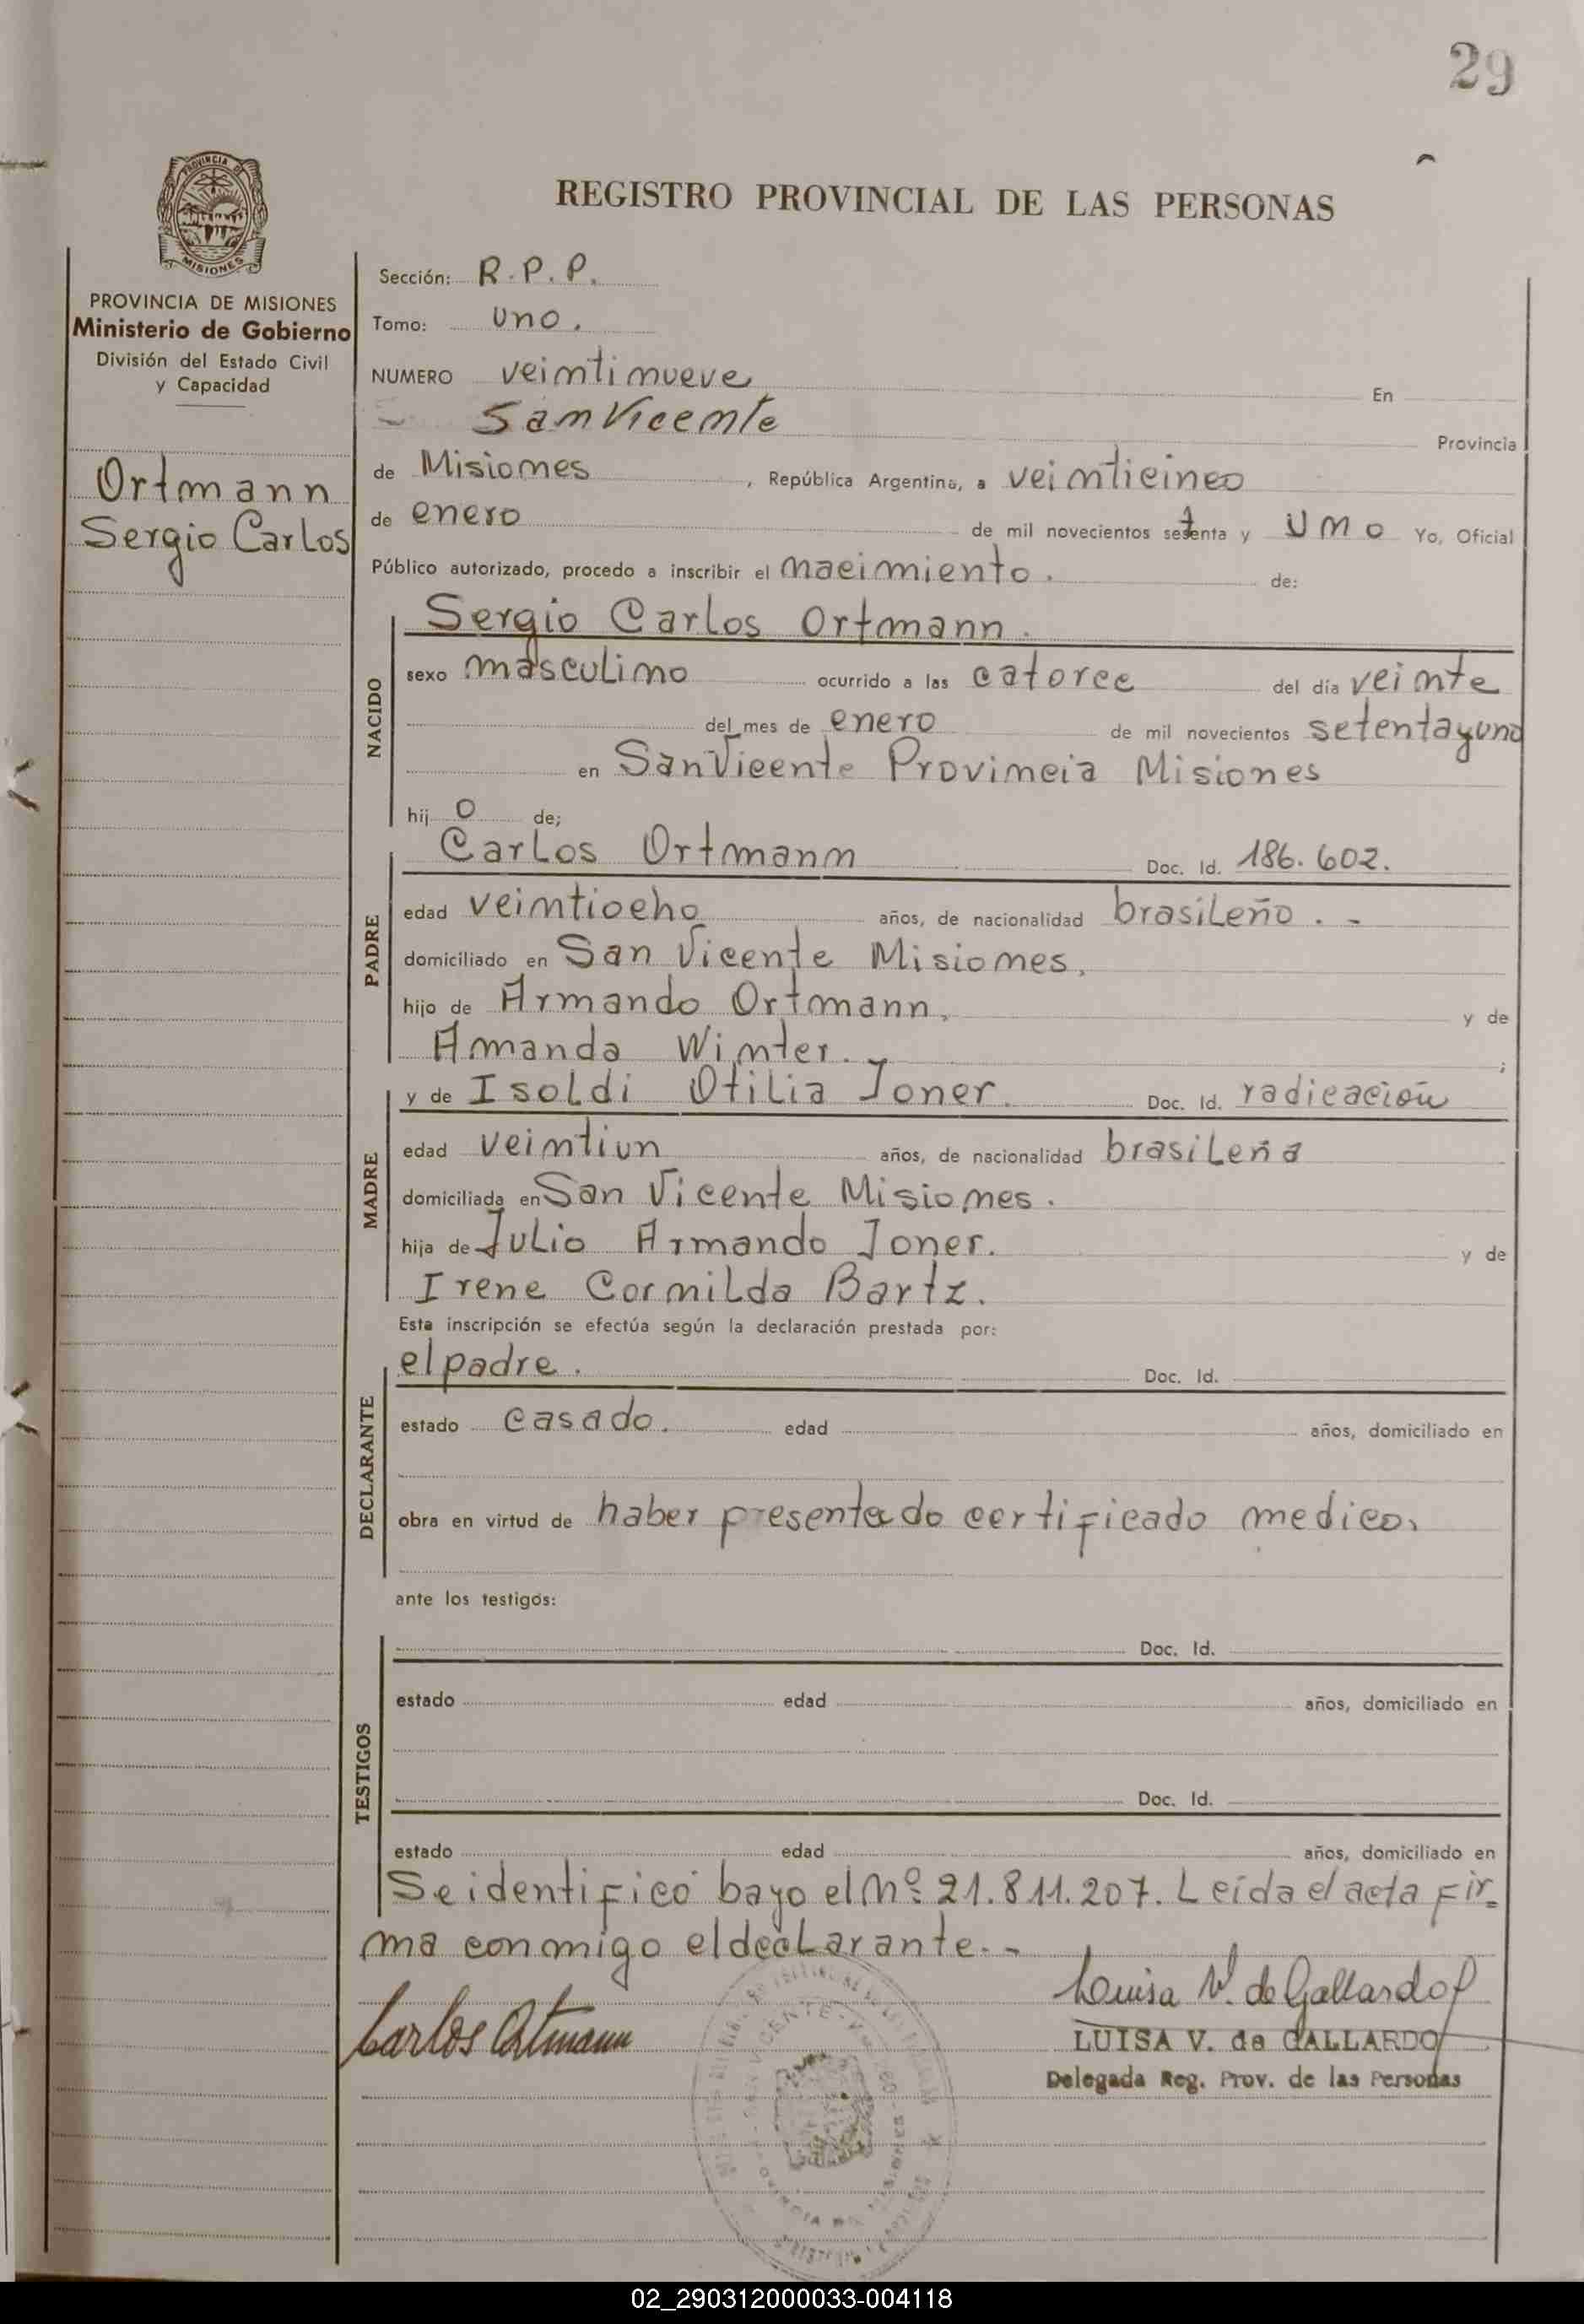 29
REGISTRO PROVINCIAL DE LAS PERSONAS
PROVINCIA DE MISIONES
Ministerio de Gobierno
División del Estado Civil
y Capacidad
Ortmann
Sergio Carlos
Sección: R.P.P.
Tomo: uno.
NUMERO veintinueve En
San Vicente Provincia
de Misiones, República Argentina, a veinticinco
de enero de mil novecientos setenta y uno Yo, Oficial
Público autorizado, procedo a inscribir el nacimiento. de:
NACIDO
Sergio Carlos Ortmann.
sexo masculino ocurrido a las catorce del día veinte
del mes de enero de mil novecientos setenta y uno
en San Vicente Provincia Misiones
hij o de;
PADRE
Carlos Ortmann Doc. Id. 186.602.
edad veintiocho años, de nacionalidad brasileño. -
domiciliado en San Vicente Misiones.
hijo de Armando Ortmann. y de
Amanda Winter. ;
MADRE
y de Isoldi Otilia Joner. Doc. Id. radicación
edad veintiun años, de nacionalidad brasileña
domiciliada en San Vicente Misiones.
hija de Julio Armando Joner. y de
Irene Cornilda Bartz.
Esta inscripción se efectúa según la declaración prestada por:
DECLARANTE
el padre. Doc. Id.
estado casado. edad años, domiciliado en
obra en virtud de haber presentado certificado medico.
ante los testigos:
TESTIGOS
Doc. Id.
estado edad años, domiciliado en
Doc. Id.
estado edad años, domiciliado en
Se identificó bayo el Nº 21.811.207. Leída el acta fir=
ma conmigo el declarante. -
Carlos Ortmann
Luisa V. de Gallardo
LUISA V. de GALLARDO
Delegada Reg. Prov. de las Personas
02_290312000033-004118